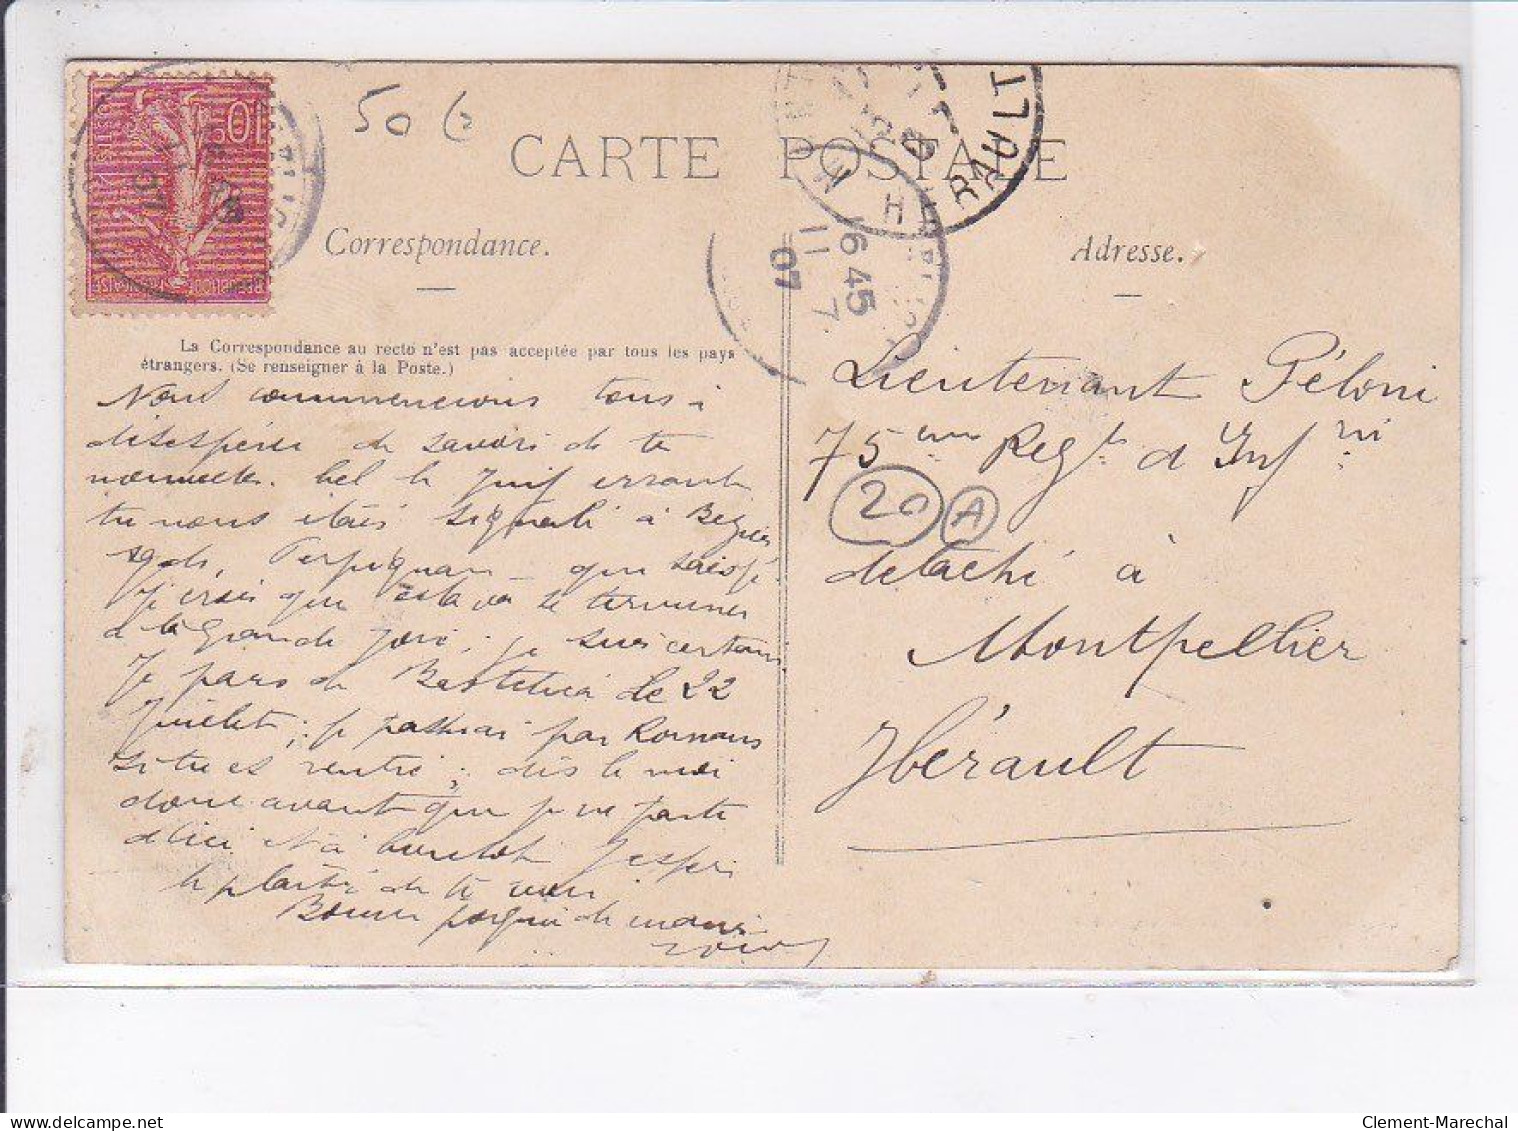 50 €
CARTE POSTALE
Correspondance.
Adresse.
10c
HÉRAULT
6 45
11 7
07
La Correspondance au recto n'est pas acceptée par tous les pays
étrangers. (Se renseigner à la Poste.)
Nous commencions tous à
désespérer de savoir de tes
nouvelles. Tel le Juif errant
tu nous étais signalé à Beziers
Agde, Perpignan – que sais-je
Je crois que cela va se terminer
à la grande joie, je suis certain
Je pars de le 22
Juillet; je passerai par Romans
si tu es rentré; dis le moi
donc avant que je ne parte
d'ici et à bientôt J'espère
le plaisir de te voir
Bonne poignée de main
Lieutenant Péloni
75ème Regt d'Infrie
20 A
détaché à
Montpellier
Hérault
delcampe.net
Clement-Marechal